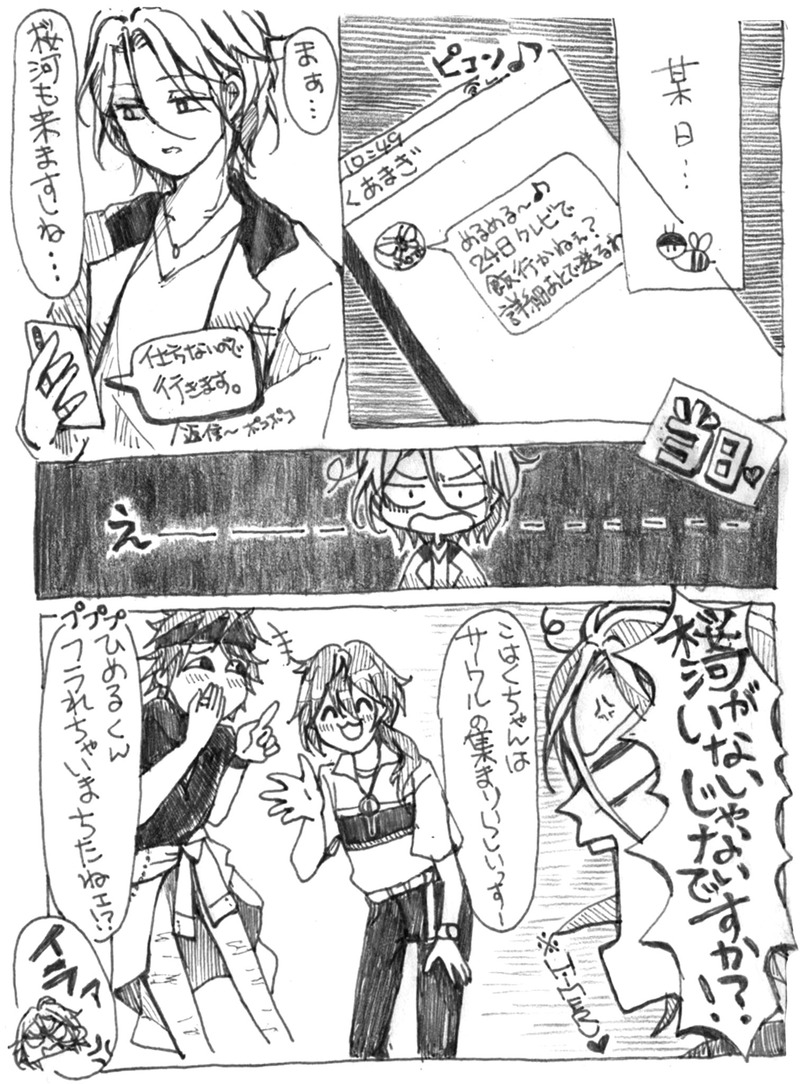 某日…
ピコン♪
10:49
くあまぎ
めるめる~♪
24日クレビで
飯行かねぇ?
詳細あとで送るわ
まぁ…
桜河も来ますしね…
仕事ないので
行きます。
返信~ポコポコ
当日♥
えーーーー
桜河が
いないじゃ
ないですか!?
※エーリュシ♥
こはくちゃんは
サークルの集まりらしいっすー
ププププ
ひめるくん
フラれちゃいまちたねェ!?
イラァ